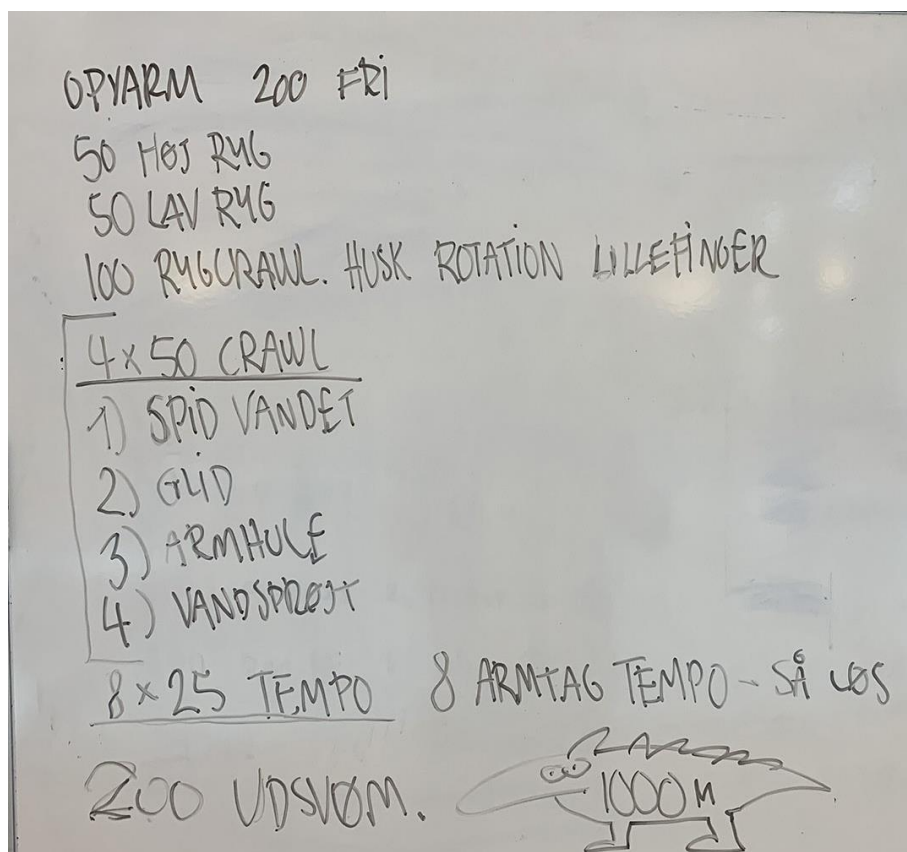 OPVARM 200 FRI
50 HØJ RYG
50 LAV RYG
100 RYGCRAWL. HUSK ROTATION LILLEFINGER
4x50 CRAWL
1) SPID VANDET
2) GLID
3) ARMHULE
4) VANDSPRØJT
8x25 TEMPO 8 ARMTAG TEMPO - SÅ LØS
200 UDSVØM.
1000 M